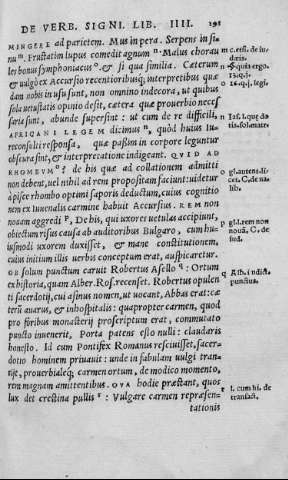 DE VERB. SIGNI. LIB. IIII. 191
MINGERE ad parietem. Mus in pera. Serpens in si
nu m. Frustatim lupus comedit agnum n. Malus chorau
les bonus symphoniacus o. & si qua similia. Cæterum
& uulgò ex Accursio recentioribusq;, interpretibus quæ
dam nobis in usu sunt, non omnino indecora, ut quibus
sola uetustatis opinio desit, cætera quæ prouerbio neces
saria sunt, abunde supersint: ut cum de re difficili,
AFRICANI LEGEM dicimus n, quòd huius Iu-
reconsulti responsa, quæ passim in corpore leguntur
obscura sint, & interpretatione indigeant. QVID AD
RHOMBVM o? de his qua ad collationem admitti
non debent, uel nihil ad rem propositam faciunt: uidetur
apisce rhombo optimi saporis deductum, cuius cognitio
non ex Iuuenalis carmine habuit Accursius. REM non
nouam aggredi p. De his, qui uxores uetulas accipiunt,
deductum risus causa ab auditoribus Bulgaro, cum hu-
iusmodi uxorem duxisset, & mane constitutionem,
cuius initium illis uerbis conceptum erat, auspicaretur.
OB solum punctum caruit Robertus Asello q: Ortum
ex historia, quam Alber. Ros. recenset. Roberto opulen
ti sacerdotij, cui asinus nomen, ut uocant, Abbas erat: cæ
terũ auarus, & inhospitalis: quapropter carmen, quod
pro foribus monasterij proscriptum erat, commutato
puncto inuenerit, Porta patens esto nulli: claudaris
honesto. Id cum Pontifex Romanus resciuisset, sacer-
dotio hominem priuauit: unde in fabulam uulgi tran-
sijt, prouerbialeq; carmen ortum, de modico momento,
rem magnam amittentibus. OVA hodie præstant, quos
lux det crestina pullis r: Vulgare carmen repræsen-
tationis
m c. est. de iu-
daris.
n 45. quis ergo.
13. q. 1.
o 16. q. 1. legi.
n Ias. l. que do
tis. sol. matr.
o gl. auten. di-
cet. C. de na.
lib.
p gl. rem non
nouã. C. de
iud.
q
punctus.
r l. cum hi. de
transact.